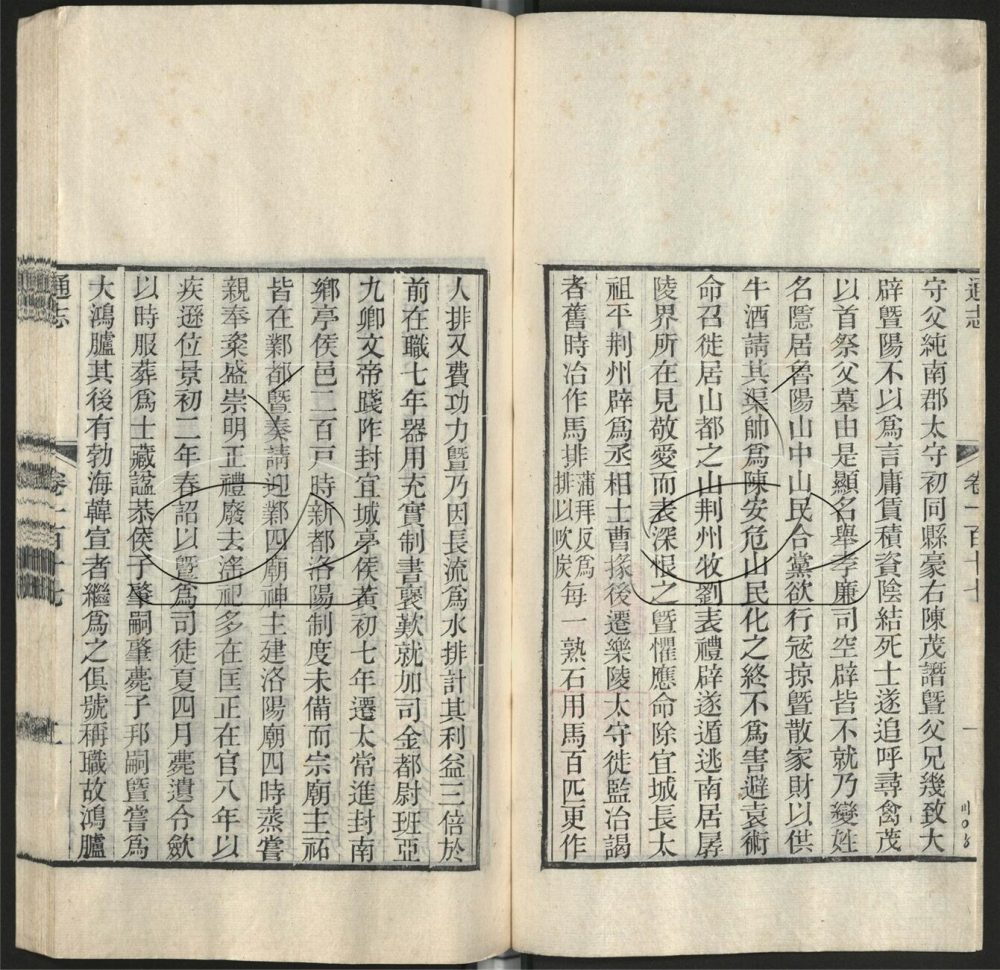 通志
卷一百十七
一
守父純南郡太守初同縣豪右陳茂譖暨父兄幾致大
辟暨陽不以爲言庸賃積資陰結死士遂追呼尋禽茂
以首祭父墓由是顯名舉孝廉司空辟皆不就乃變姓
名隱居魯陽山中山民合黨欲行寇掠暨散家財以供
牛酒請其渠帥爲陳安危山民化之終不爲害避袁術
命召徙居山都之山荆州牧劉表禮辟遂遁逃南居孱
陵界所在見敬愛而表深恨之暨懼應命除宜城長太
祖平荆州辟爲丞相士曹掾後遷樂陵太守徙監冶謁
者舊時冶作馬排蒲拜反爲排以吹炭每一熟石用馬百匹更作
人排又費功力暨乃因長流爲水排計其利益三倍於
前在職七年器用充實制書褒歎就加司金都尉班亞
九卿文帝踐阼封宜城亭侯黃初七年遷太常進封南
鄉亭侯邑二百戸時新都洛陽制度未備而宗廟主祏
皆在鄴都暨奏請迎鄴四廟神主建洛陽廟四時蒸嘗
親奉粢盛崇明正禮廢去淫祀多在匡正在官八年以
疾遜位景初二年春詔以暨爲司徒夏四月薨遺令斂
以時服葬爲土藏諡恭侯子肇嗣肇薨子邦嗣暨嘗爲
大鴻臚其後有勃海韓宣者繼爲之俱號稱職故鴻臚
通志